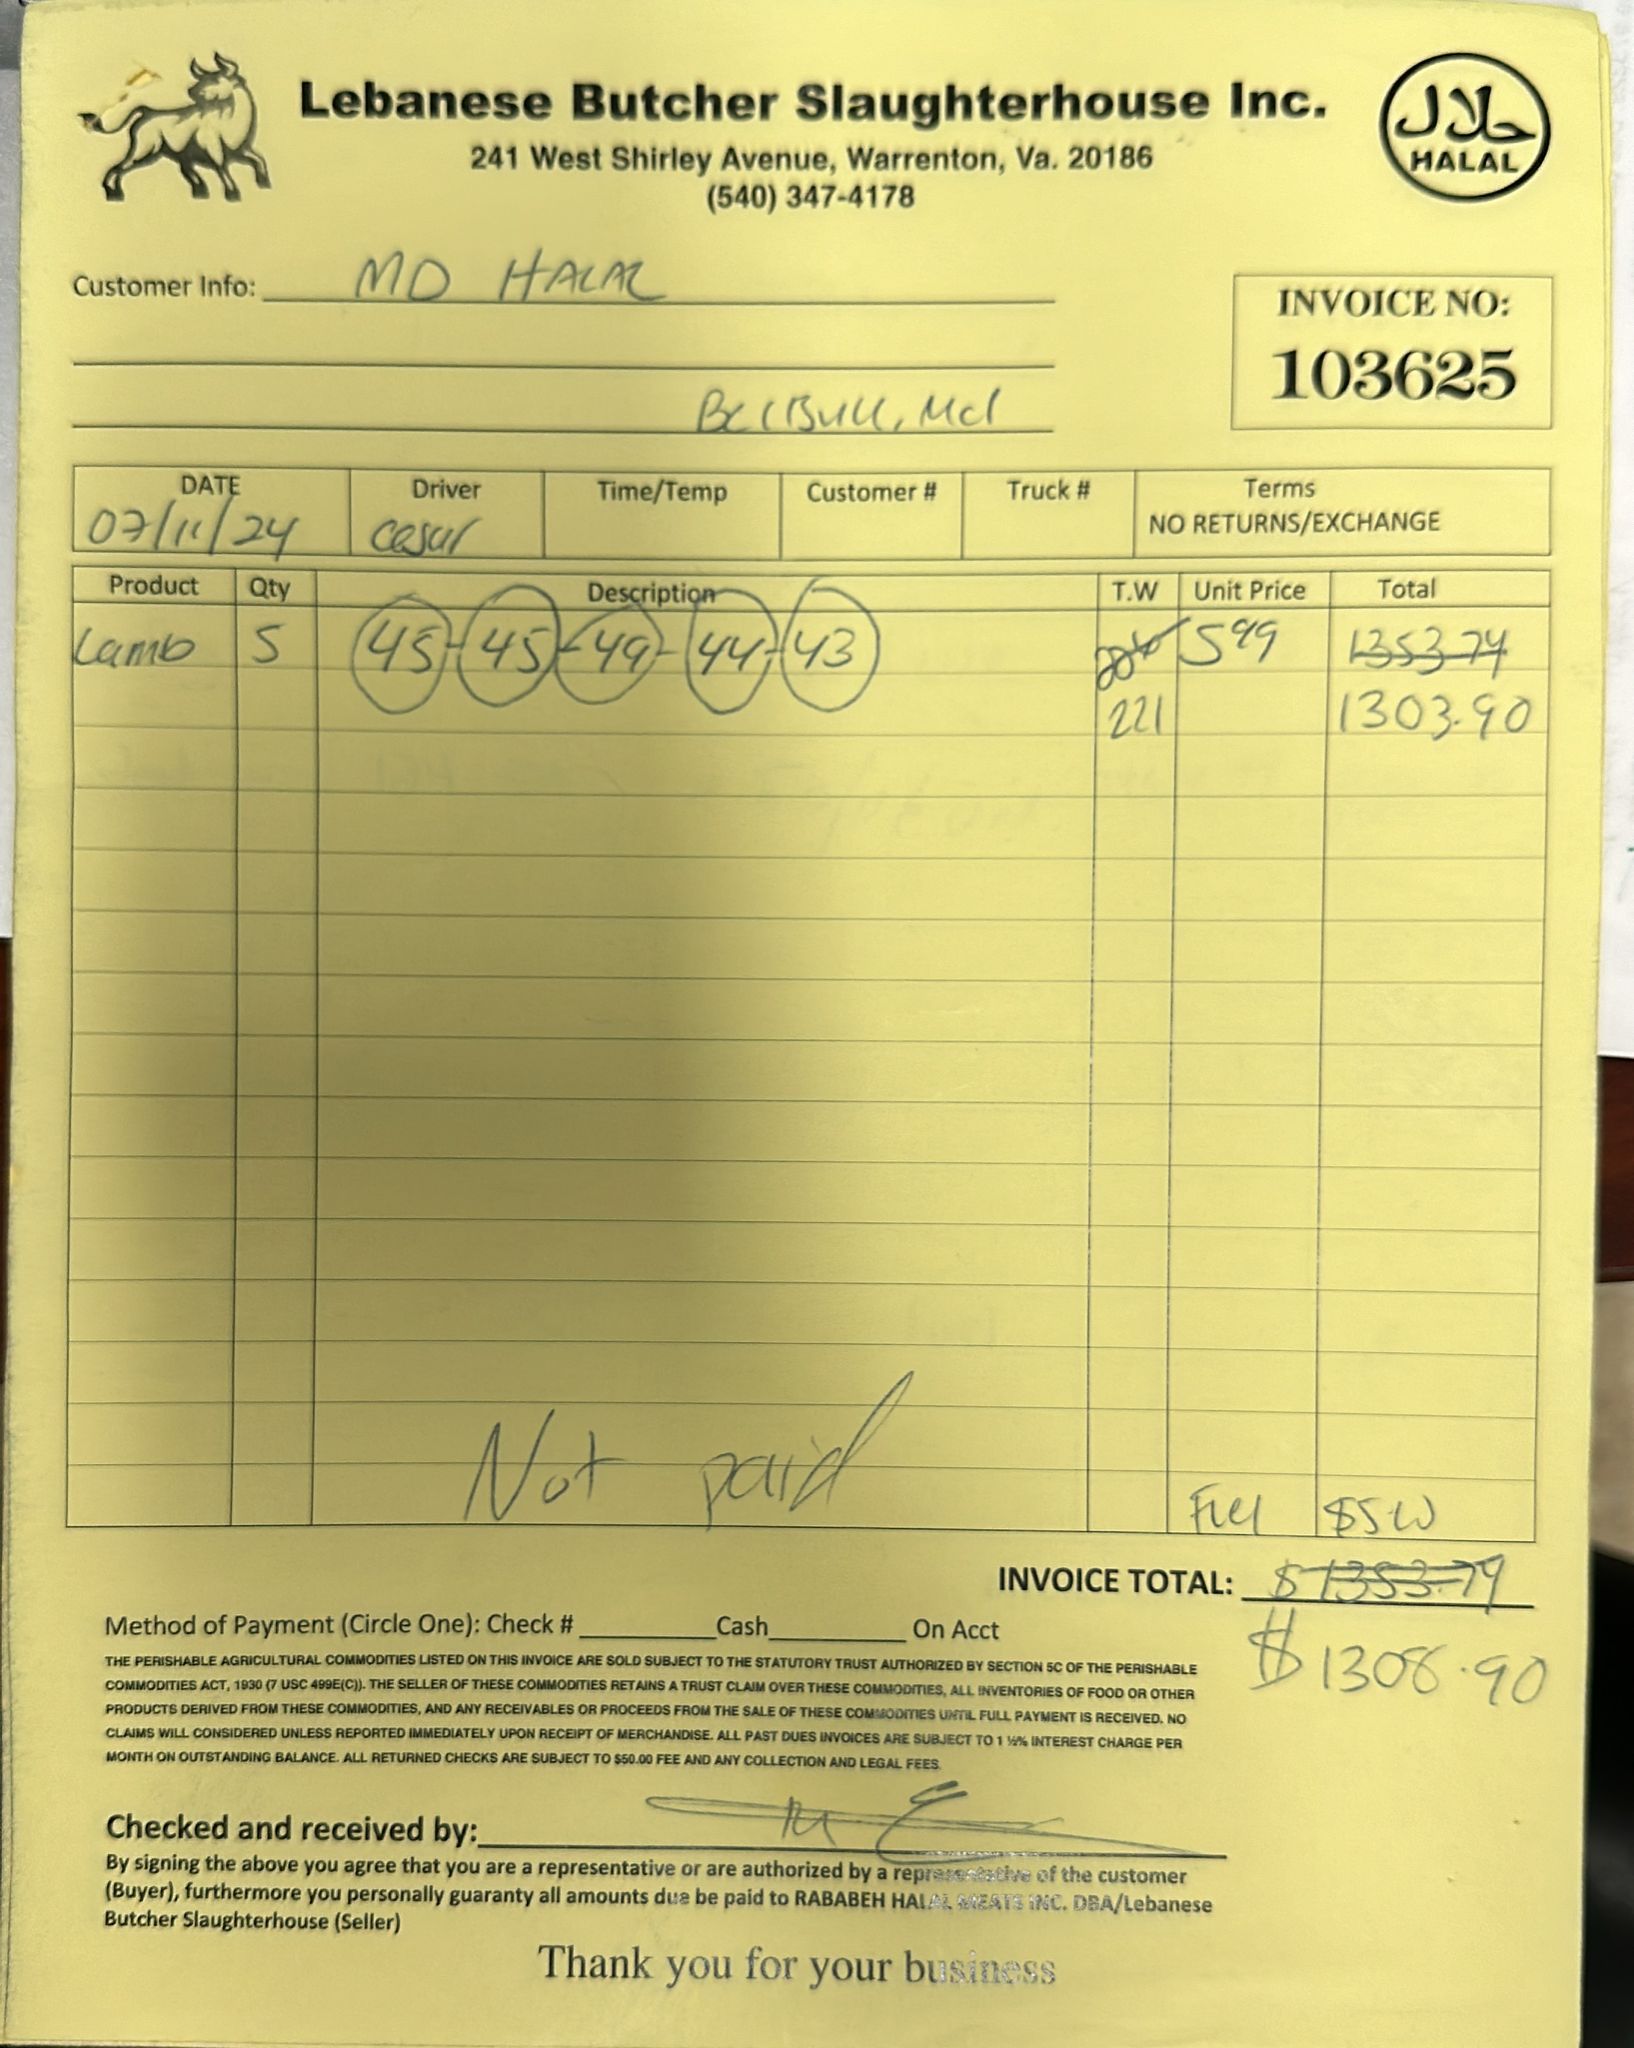 Lebanese Butcher Slaughterhouse Inc.
241 West Shirley Avenue, Warrenton, Va. 20186
(540) 347-4178
حلال
HALAL
Customer Info: MD HALAL
INVOICE NO:
103625
Md
DATE Driver Time/Temp Customer # Truck # Terms
07/11/24 Cesar NO RETURNS/EXCHANGE
Product Qty Description T.W Unit Price Total
Lamb 5 45-45-49-44-43 5 99 1353.74
221 1303.90
Not paid
Fuel $5
INVOICE TOTAL: $1353.79
$1308.90
Method of Payment (Circle One): Check # Cash On Acct
THE PERISHABLE AGRICULTURAL COMMODITIES LISTED ON THIS INVOICE ARE SOLD SUBJECT TO THE STATUTORY TRUST AUTHORIZED BY SECTION 5C OF THE PERISHABLE
COMMODITIES ACT, 1930 (7 USC 499E(C)). THE SELLER OF THESE COMMODITIES RETAINS A TRUST CLAIM OVER THESE COMMODITIES, ALL INVENTORIES OF FOOD OR OTHER
PRODUCTS DERIVED FROM THESE COMMODITIES, AND ANY RECEIVABLES OR PROCEEDS FROM THE SALE OF THESE COMMODITIES UNTIL FULL PAYMENT IS RECEIVED. NO
CLAIMS WILL CONSIDERED UNLESS REPORTED IMMEDIATELY UPON RECEIPT OF MERCHANDISE. ALL PAST DUES INVOICES ARE SUBJECT TO 1 ½% INTEREST CHARGE PER
MONTH ON OUTSTANDING BALANCE. ALL RETURNED CHECKS ARE SUBJECT TO $50.00 FEE AND ANY COLLECTION AND LEGAL FEES.
Checked and received by:
By signing the above you agree that you are a representative or are authorized by a representative of the customer
(Buyer), furthermore you personally guaranty all amounts due be paid to RABABEH HALAL MEATS INC. DBA/Lebanese
Butcher Slaughterhouse (Seller)
Thank you for your business